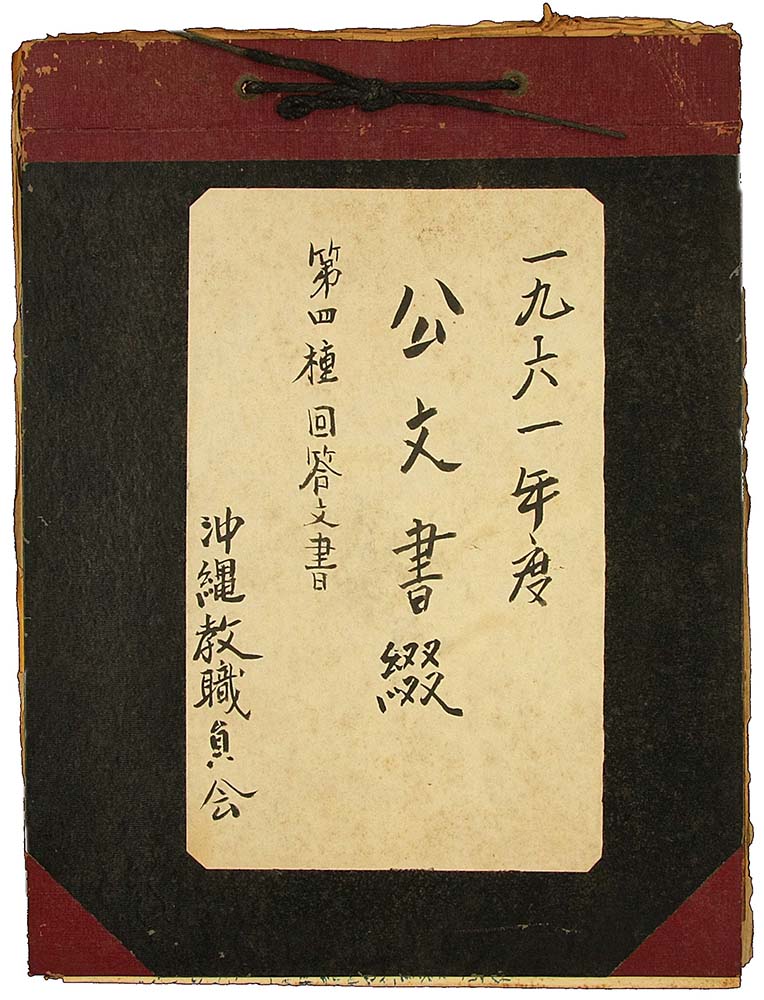 一九六一年度
公文書綴
第四種回答文書
沖縄教職員会